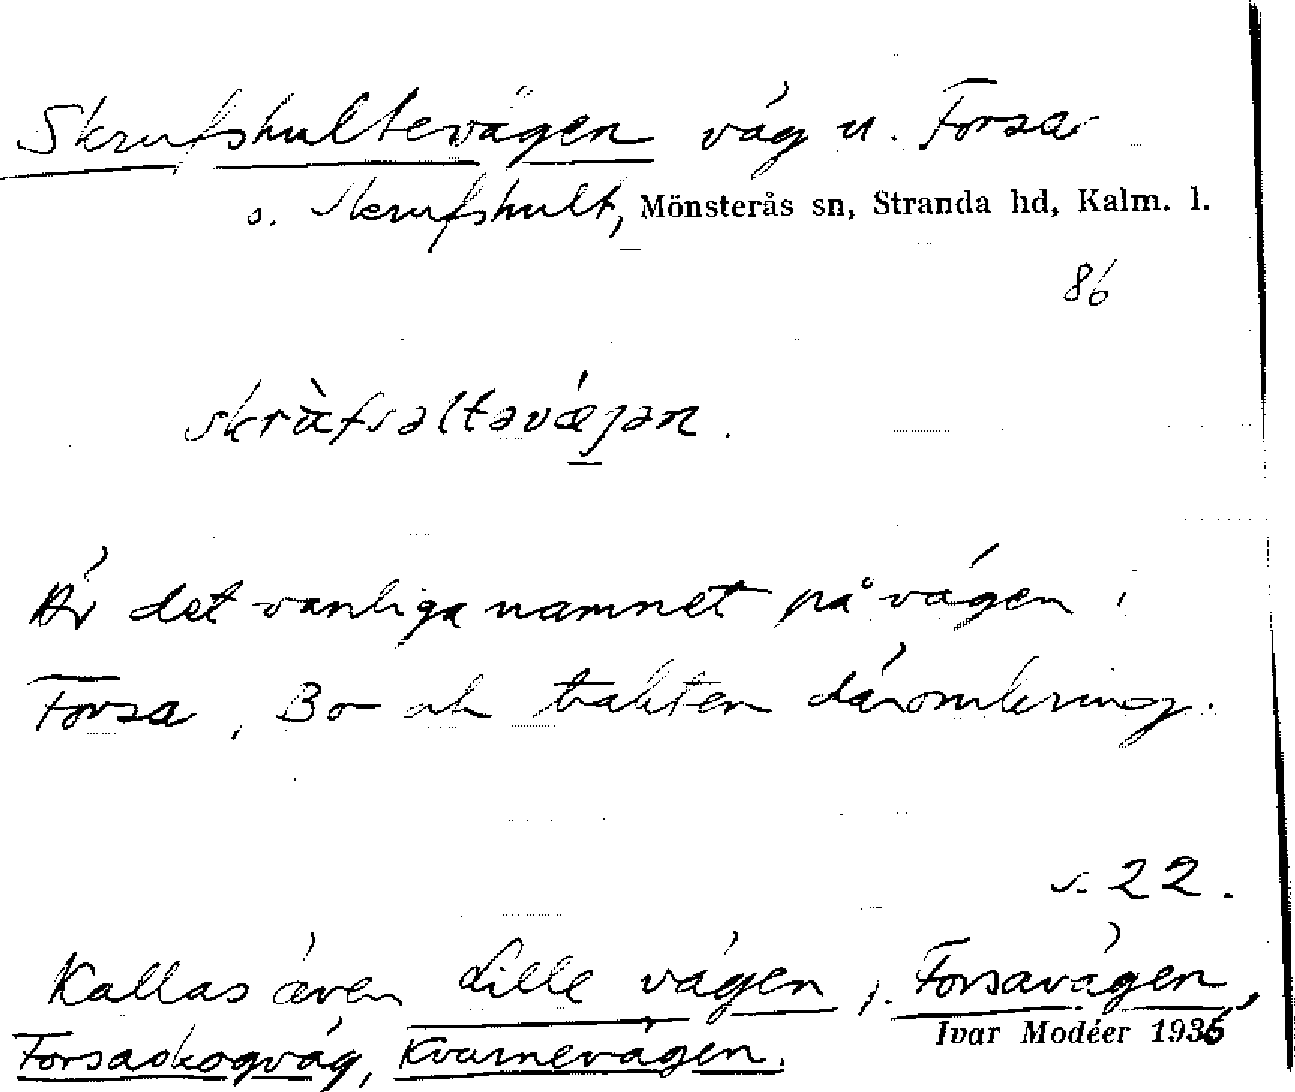 Skrufshultevägen väg u. Forsa
o. Skrufshult, Mönsterås sn, Stranda hd, Kalm. l.
86
skràfsəltəvǽjən.
Är det vanliga namnet på vägen i
Forsa, Bo och trakten däromkring.
s. 22.
Kallas även Lille vägen, Forsavägen,
Ivar Modéer 1936
Forsaskogväg, Kvarnevägen.